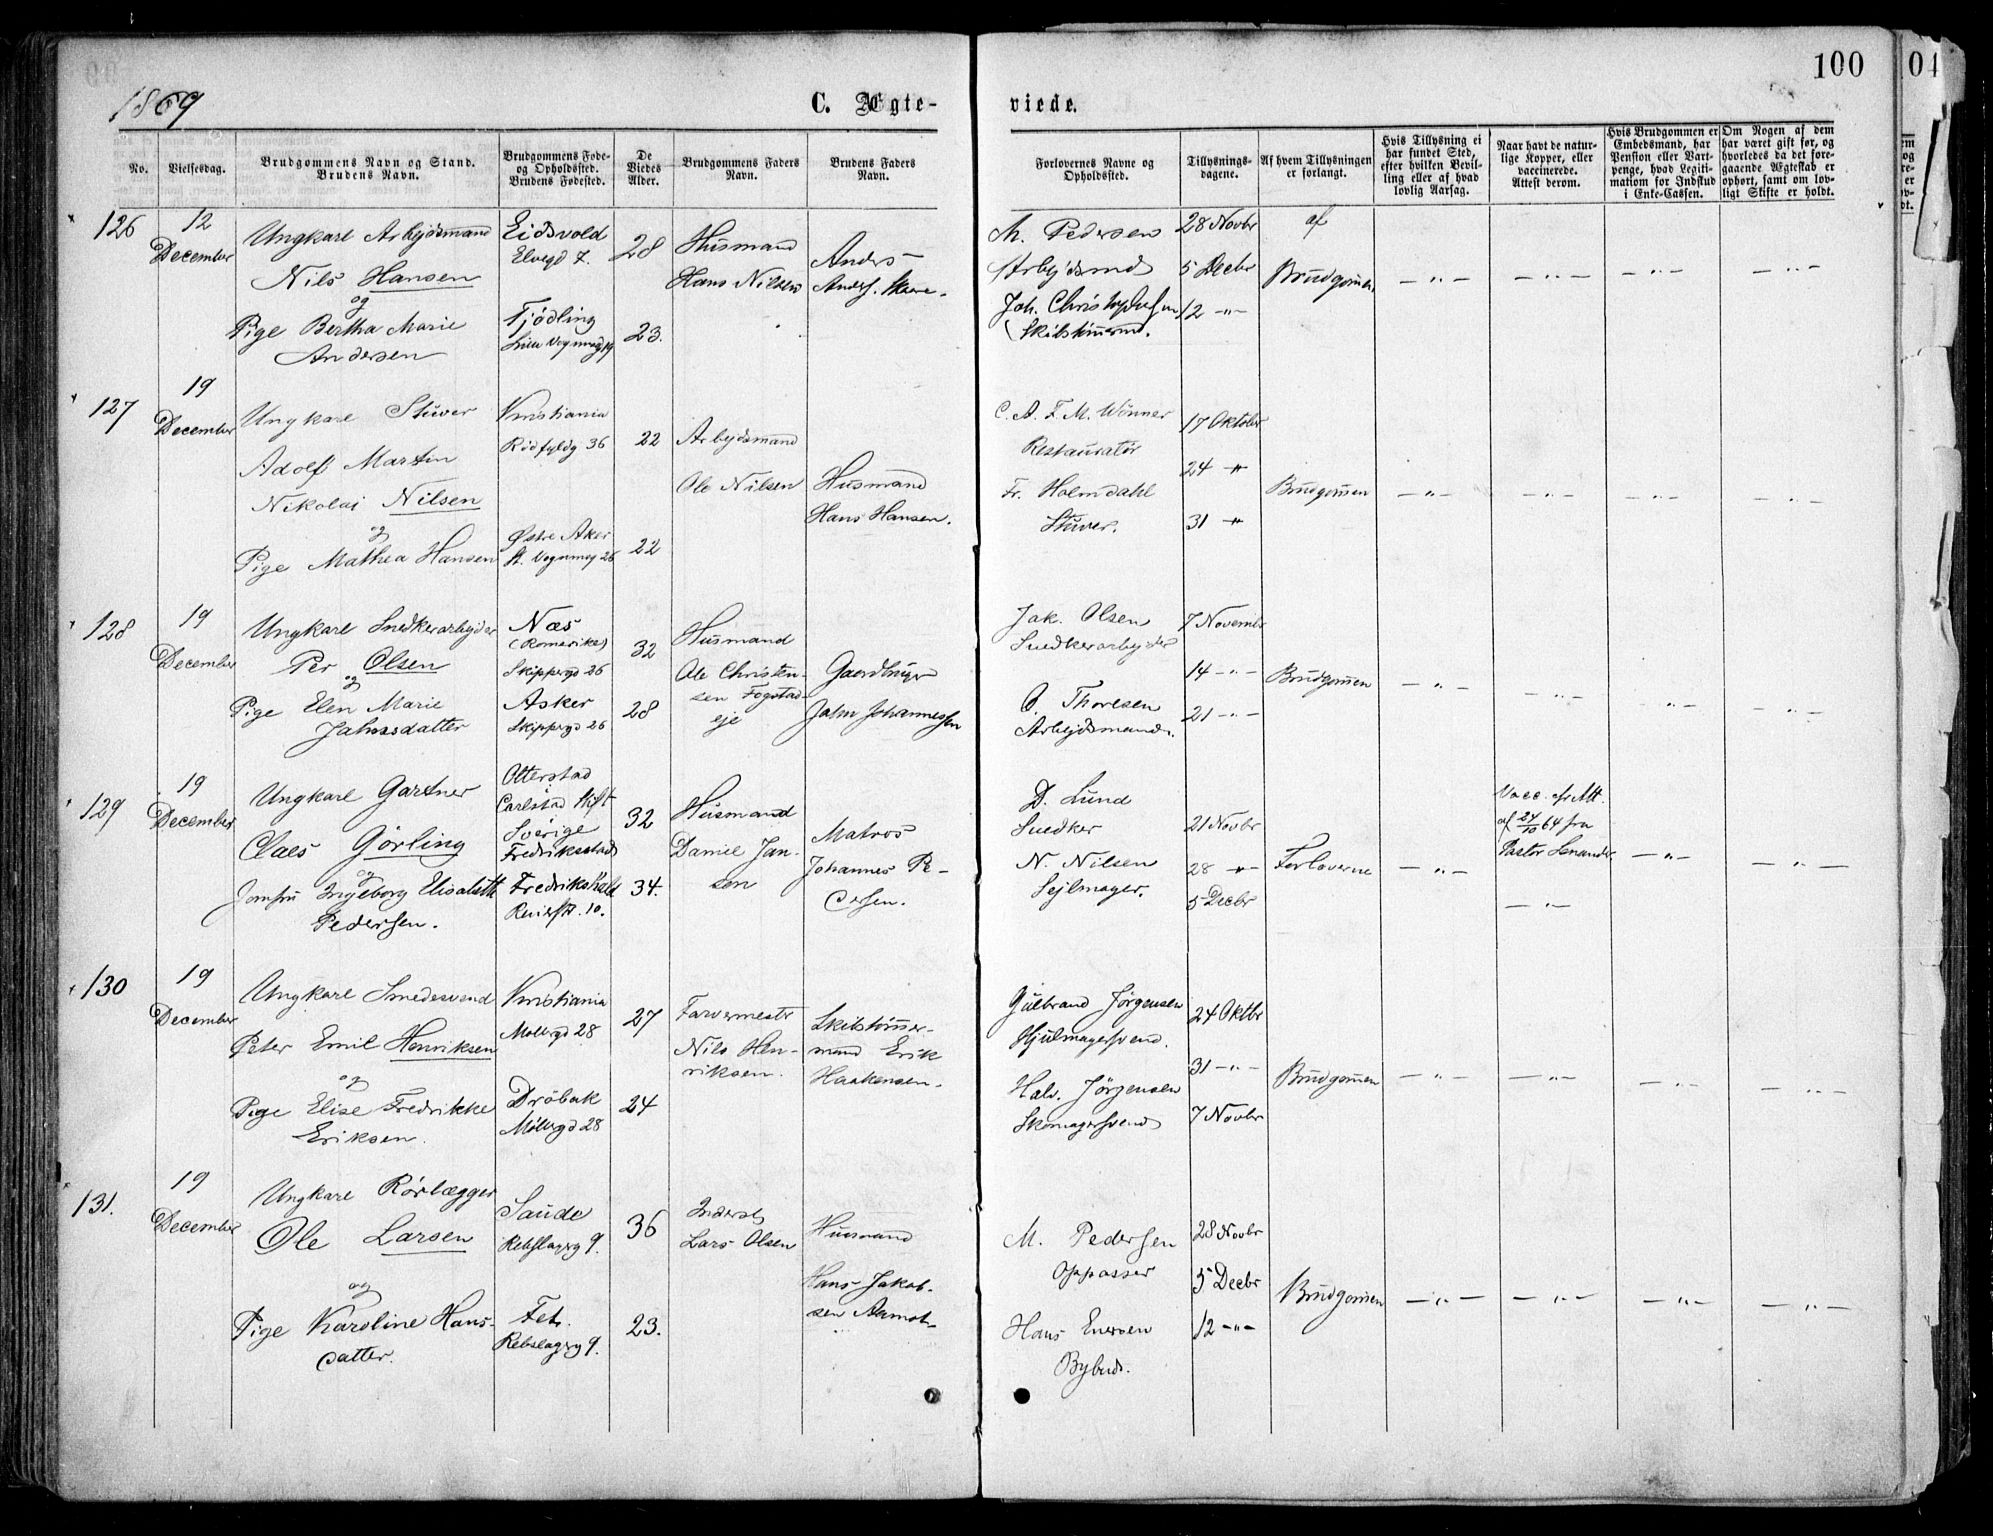 1869
C. Ægte-
viede.
100
No.
Vielsesdag.
Brudgommens Navn og Stand.
Brudens Navn.
Brudgommens Føde-
og Opholdssted.
Brudens Fødested.
De
Viedes
Alder.
Brudgommens Faders
Navn.
Brudens Faders
Navn.
Forlovernes Navne og
Opholdssted.
Tillysnings-
dagene.
Af hvem Tillysningen
er forlangt.
Hvis Tillysning ei
har fundet Sted,
efter hvilken Bevil-
ling eller af hvad
lovlig Aarsag.
Naar havt de natur-
lige Kopper, eller
vaccinerede.
Attest derom.
Hvis Brudgommen er
Embedsmand, har
Pension eller Vart-
penge, hvad Legiti-
mation for Indskud
i Enke-Cassen.
Om Nogen af dem
har været gift før, og
hvorledes da det fore-
gaaende Ægteskab er
ophørt, samt om lov-
ligt Skifte er holdt.
126
12
December
Ungkarl Arbejdsmand
Nils Hansen
og
Pige Bertha Marie
Andersen
Eidsvold
Elvegd 7.
Tjödling
Lille Vognmdg 19
28
23.
Husmand
Hans Nilsen
Anders
Anders.
M. Pedersen
Arbejdsmd
Joh. Christophersen
Skibstömmd.
28 Novbr
5 Decbr
12 -"-
af
Brudgommen
-"- -"- -"- -"-
127
19
December
Ungkarl Stuver
Adolf Martin
Nikolai Nilsen
og
Pige Mathea Hansen
Kristiania
Rödfyldg 36
Östre Aker
St. Vognmg 26
22
22
Arbejdsmand
Ole Nilsen
Husmand
Hans Hansen.
C. A. F. M. Wönner
Restauratör
Fr. Holmdahl
Stuver.
17 Oktober
24 -"-
31 -"-
Brudgommen
-"- -"- -"- -"-
128
19
December
Ungkarl Snedkerarbejder
Per Olsen
og
Pige Elen Marie
Jahnsdatter
Næs
(Romerike)
Skippergd 26
Asker
Skippergd 26
32
28
Husmand
Ole Christen-
sen Fogstad-
eje
Gaardbruger
Jahn Johannessen
Jak. Olsen
Snedkerarbejder
O. Thoresen
Arbejdsmand.
7 Novembr
14 -"-
21 -"-
Brudgommen
-"- -"- -"- -"-
129
19
December
Ungkarl Gartner
Claes Görling
og
Jomfru Ingeborg Elisabeth
Pedersen.
Otterstad
Carlstad Stift
Sverige
Fredriksstad
Fredrikshald
Revierstr. 10.
32
34.
Husmand
Daniel Jan-
sen
Matros
Johannes Pe-
dersen.
D. Lund
Snedker
N. Nilsen
Sejlmager.
21 Novbr
28 -"-
5 Decbr
Forloverne
-"-
Vacc. efr Att.
af 24/10 64 fra
Pastor Lenander
-"-
-"- -"-
130
19
December
Ungkarl Smedesvend
Peter Emil Henriksen
og
Pige Elise Fredrikke
Eriksen.
Kristiania
Mollergd 28
Dröbak
Möllergd 28
27
24
Farvermester
Nils Hen-
riksen.
Skibstömmer-
mand Erik
Haakensen.
Gulbrand Jörgensen
Hjulmagersvend.
Halv. Jörgensen
Skomagersvend
24 Oktbr
31 -"-
7 Novbr
Brudgommen
-"- -"- -"- -"-
131.
19
December
Ungkarl Rörlægger
Ole Larsen
og
Pige Karoline Hans-
datter.
Saude
Rebslagerg 9.
Fet.
Rebslagerg 9.
36
23.
Inderst
Lars Olsen
Husmand
Hans Jakob-
sen Aamot.
M. Pedersen
Oppasser
Hans Enersen
Bybud.
28 Novbr
5 Decbr
12 -"-
Brudgommen
-"- -"- -"- -"-